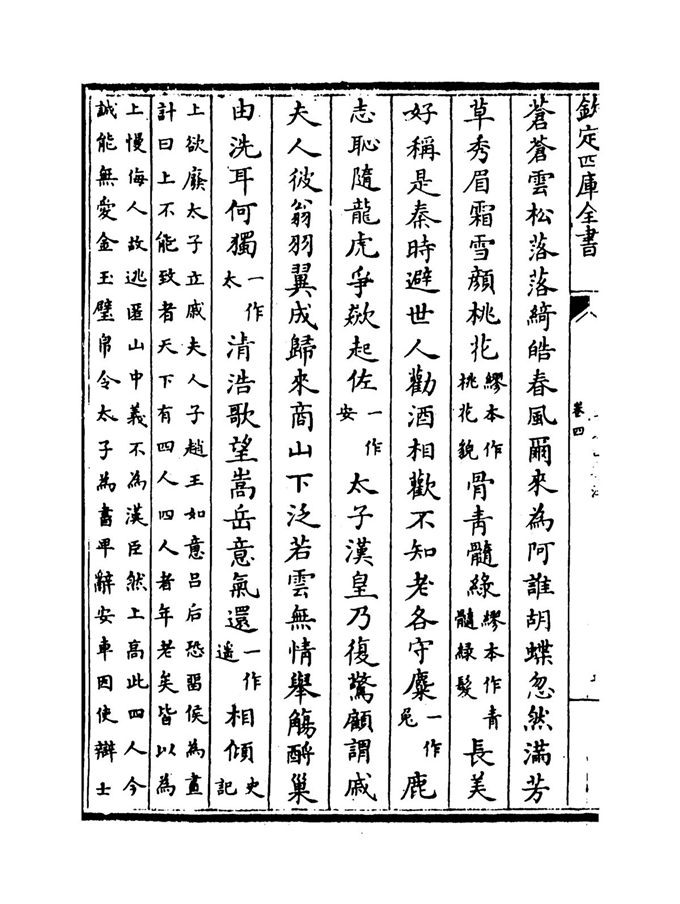 欽定四庫全書
卷四
蒼蒼雲松落落綺皓春風爾來為阿誰胡蝶忽然滿芳
草秀眉霜雪顔桃花繆本作桃花貌骨青髓綠繆本作青髓綠髮長美
好稱是秦時避世人勸酒相歡不知老各守麋一作兔鹿
志恥隨龍虎爭欻起佐一作安太子漢皇乃復驚顧謂戚
夫人彼翁羽翼成歸來商山下泛若雲無情舉觴酹巢
由洗耳何獨一作太清浩歌望嵩岳意氣還一作遙相傾史記
上欲廢太子立戚夫人子趙王如意吕后恐留侯為畫
計曰上不能致者天下有四人四人者年老矣皆以為
上慢侮人故逃匿山中義不為漢臣然上高此四人今
誠能無愛金玉璧帛令太子為書卑辭安車因使辯士